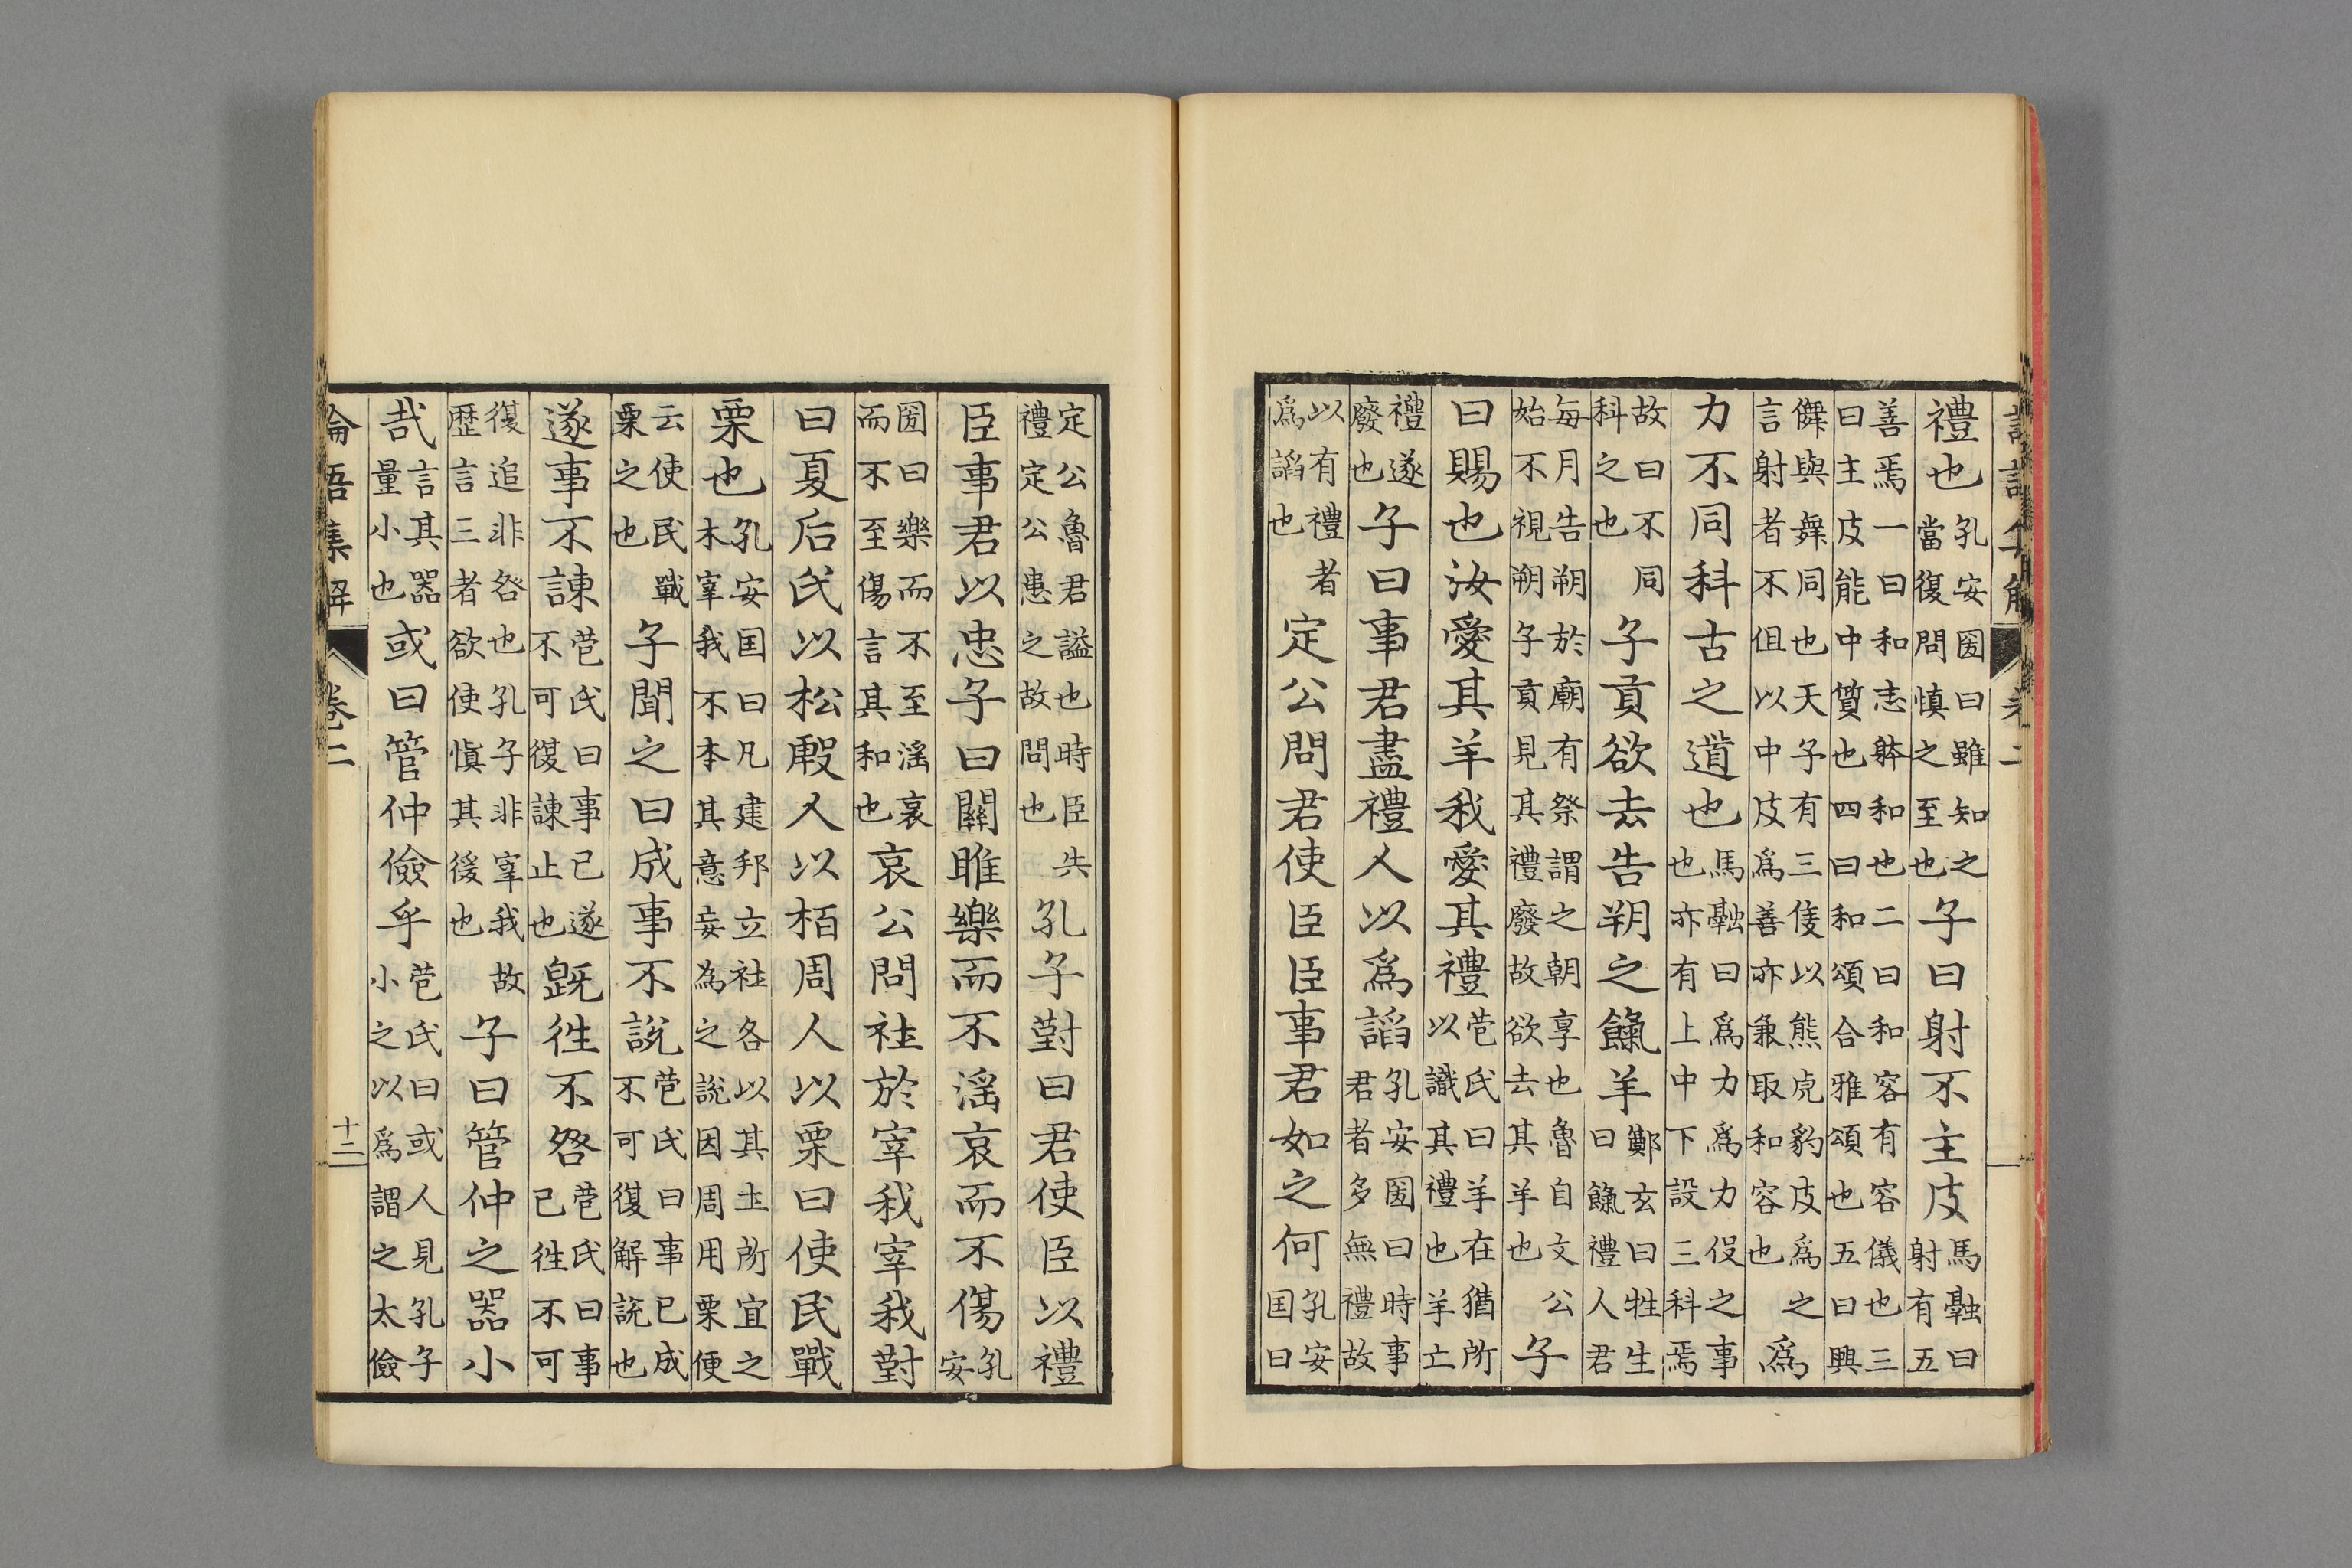 禮也孔安圀曰雖知之當復問慎之至也子曰射不主皮馬融曰射有五
善焉一曰和志躰和也二曰和容有容儀也三曰主皮能中質也四曰和頌合雅頌也五曰興
儛與舞同也天子有三隻以熊虎豹皮爲之言射者不但以中皮爲善亦兼取和容也爲
力不同科古之道也馬融曰爲力爲力伇之事也亦有上中下設三科焉
故曰不同科之也子貢欲去告朔之餼羊鄭玄曰牲生曰餼禮人君
每月告朔於廟有祭謂之朝享也魯自文公始不視朔子貢見其禮廢故欲去其羊也子
曰賜也汝愛其羊我愛其禮苞氏曰羊在猶所以識其禮也羊亡
禮遂廢也子曰事君盡禮人以爲諂孔安圀曰時事君者多無禮故
以有禮者爲諂也定公問君使臣臣事君如之何孔安囯曰
定公魯君謚也時臣失禮定公患之故問也孔子對曰君使臣以禮
臣事君以忠子曰關雎樂而不滛哀而不傷孔安
圀曰樂而不至滛哀而不至傷言其和也哀公問社於宰我宰我對
曰夏后氏以松殷人以栢周人以栗曰使民戰
栗也孔安囯曰凡建邦立社各以其土所宜之木宰我不本其意妄為之說因周用栗便
云使民戰栗之也子聞之曰成事不說苞氏曰事已成不可復解說也
遂事不諫苞氏曰事已遂不可復諫止也旣徃不咎苞氏曰事已徃不可
復追非咎也孔子非宰我故歷言三者欲使慎其後也子曰管仲之器小
哉言其器量小也或曰管仲儉乎苞氏曰或人見孔子小之以爲謂之太儉
論語集解 卷二 十三